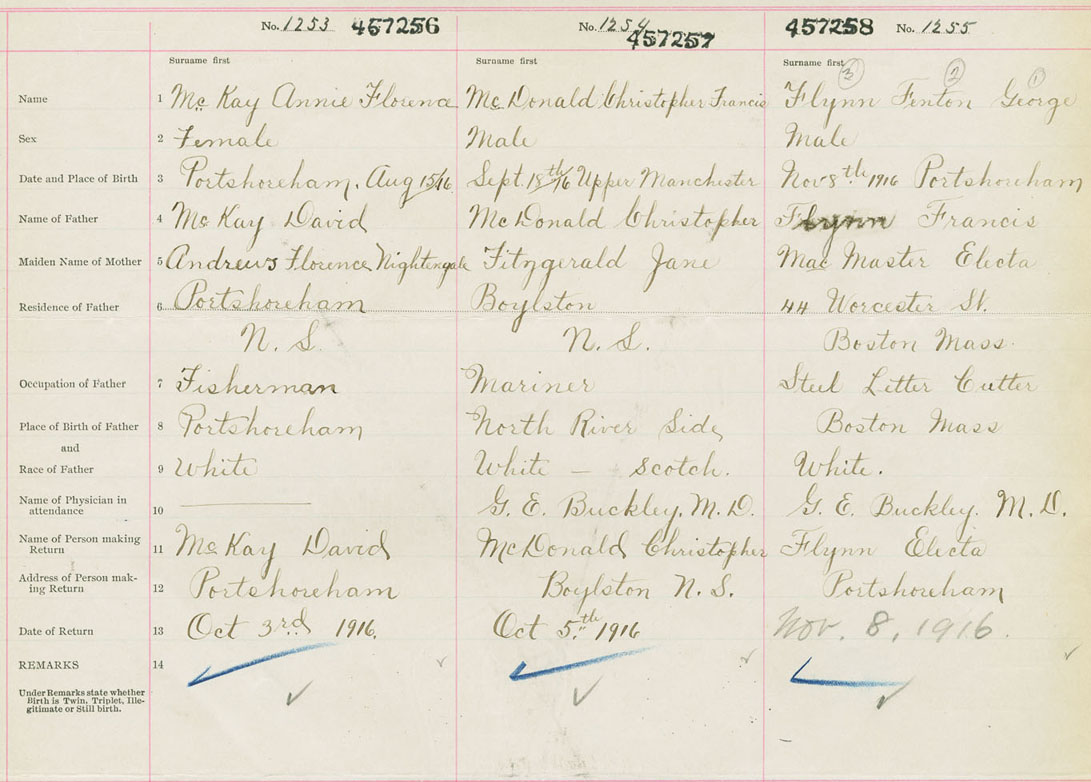 No. 1253 457256 No. 1254 457257 457258 No. 1255
Surname first Surname first Surname first
3 2 1
Name 1 Mc Kay Annie Florence McDonald Christopher Francis Flynn Fenton George
Sex 2 Female Male Male
Date and Place of Birth 3 Portshoreham, Aug 15/16 Sept. 18th/16 Upper Manchester Nov 8th 1916 Portshoreham
Name of Father 4 Mc Kay David McDonald Christopher Flynn Francis
Maiden Name of Mother 5 Andrews Florence Nightengale Fitzgerald Jane Mac Master Electa
Residence of Father 6 Portshoreham Boylston 44 Worcester St.
N. S. N. S. Boston Mass.
Occupation of Father 7 Fisherman Mariner Steel Letter Cutter
Place of Birth of Father 8 Portshoreham North River Side Boston Mass
and
Race of Father 9 White White — Scotch. White.
Name of Physician in
attendance 10 G. E. Buckley, M. D. G. E. Buckley. M. D.
Name of Person making
Return 11 Mc Kay David McDonald Christopher Flynn Electa
Address of Person mak-
ing Return 12 Portshoreham Boylston N. S. Portshoreham
Date of Return 13 Oct 3rd 1916. Oct 5th 1916 Nov. 8, 1916.
REMARKS 14
Under Remarks state whether
Birth is Twin, Triplet, Ille-
gitimate or Still birth.